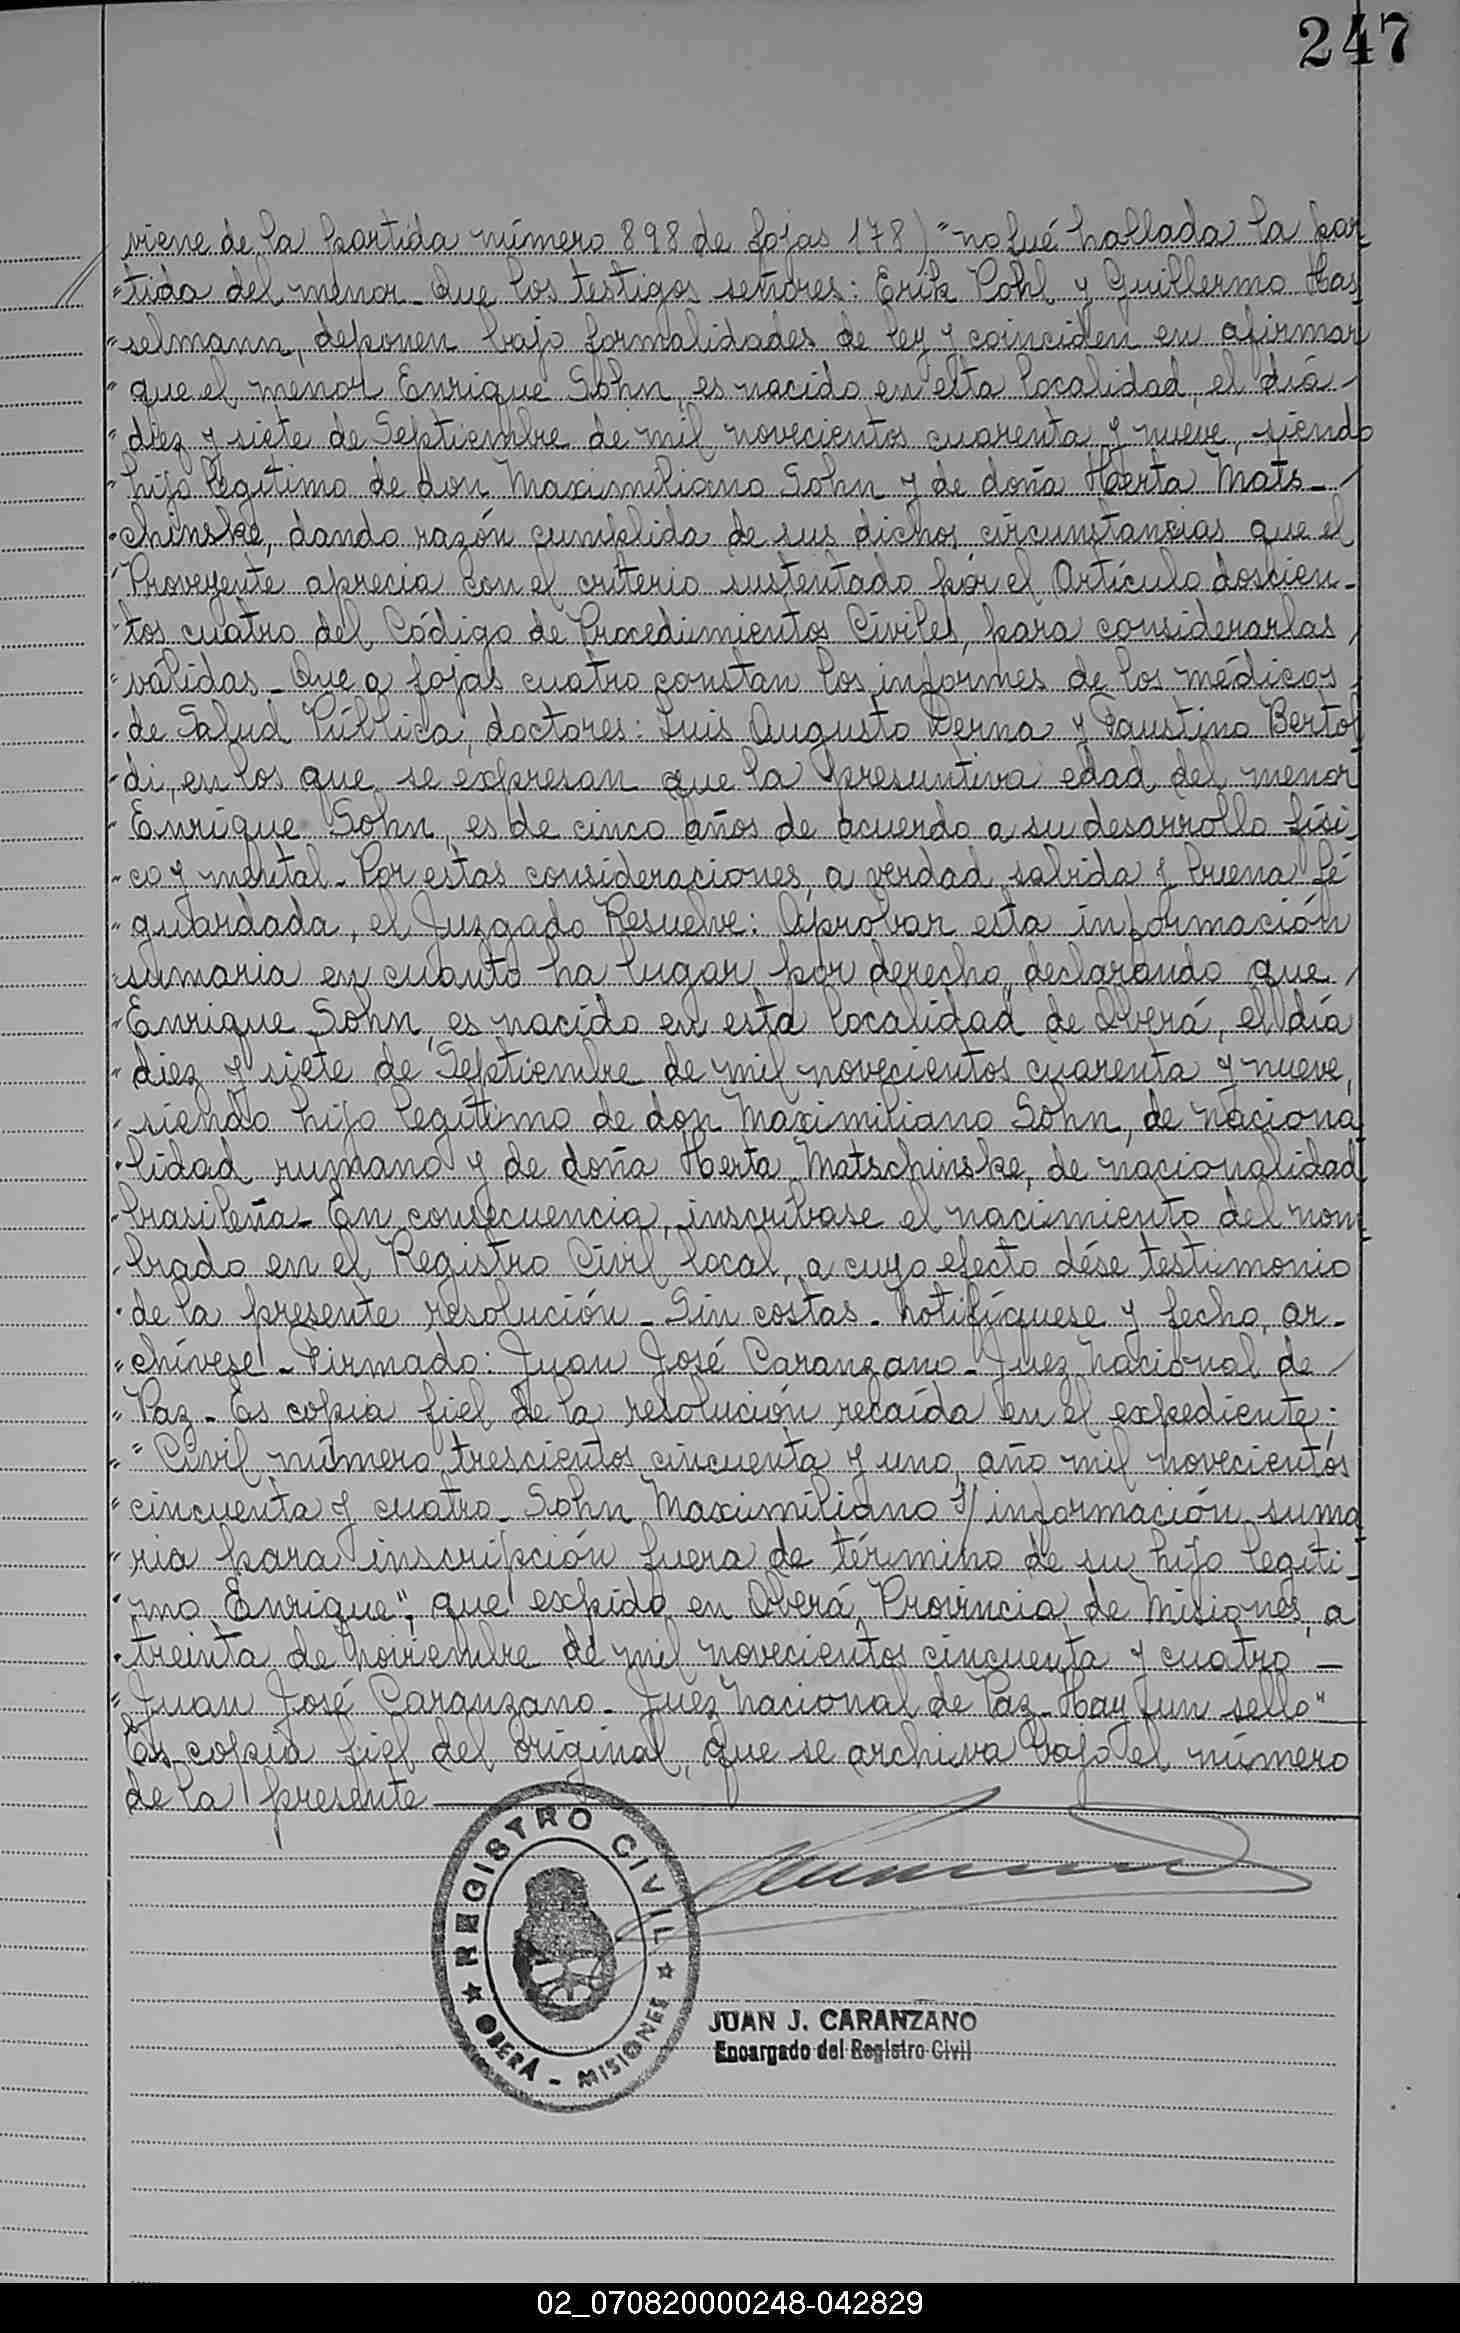 247
viene de la partida número 898 de fojas 178) "no fué hallada la par
"tida del menor_ Que los testigos señores: Erik Pohl y Guillermo Has
"selmann, deponen bajo formalidades de ley y coinciden en afirmar
"que el menor Enrique Sohn, es nacido en esta localidad, el día
"diez y siete de Septiembre de mil novecientos cuarenta y nueve, siendo
"hijo legítimo de don Maximiliano Sohn y de doña Herta Mats-
"chinske, dando razón cumplida de sus dichos, circunstancias que el
"Proveyente aprecia con el criterio sustentado por el Artículo doscien-
"tos cuatro del Código de Procedimientos Civiles, para considerarlas
"válidas_ Que a fojas cuatro constan los informes de los médicos
"de Salud Pública, doctores: Luis Augusto Derna y Faustino Bertol
"di, en los que se expresan que la presuntiva edad del menor
"Enrique Sohn, es de cinco años de acuerdo a su desarrollo físi
"co y mental_ Por estas consideraciones, a verdad sabida y buena fé
"guardada, el Juzgado Resuelve: Aprobar esta información
"sumaria en cuanto ha lugar por derecho, declarando que
"Enrique Sohn, es nacido en esta localidad de Oberá, el día
"diez y siete de Septiembre de mil novecientos cuarenta y nueve,
"siendo hijo legítimo de don Maximiliano Sohn, de naciona
"lidad rumano y de doña Herta Matschinske, de nacionalidad
"brasileña_ En consecuencia, inscríbase el nacimiento del nom
"brado en el Registro Civil local, a cuyo efecto dése testimonio
"de la presente resolución_ Sin costas_ Notifíquese y fecho, ar-
"chívese_ Firmado: Juan José Caranzano_ Juez Nacional de
"Paz_ Es copia fiel de la resolución recaída en el expediente:
" "Civil número trescientos cincuenta y uno, año mil novecientos
"cincuenta y cuatro_ Sohn Maximiliano s/ información suma
"ria para inscripción fuera de término de su hijo legíti
"mo Enrique", que expido en Oberá, Provincia de Misiones, a
"treinta de Noviembre de mil novecientos cincuenta y cuatro_
"Juan José Caranzano_ Juez Nacional de Paz_ Hay un sello"
Es copia fiel del original, que se archiva bajo el número
de la presente
REGISTRO CIVIL
OBERÁ - MISIONES
JUAN J. CARANZANO
Encargado del Registro Civil
02_070820000248-042829